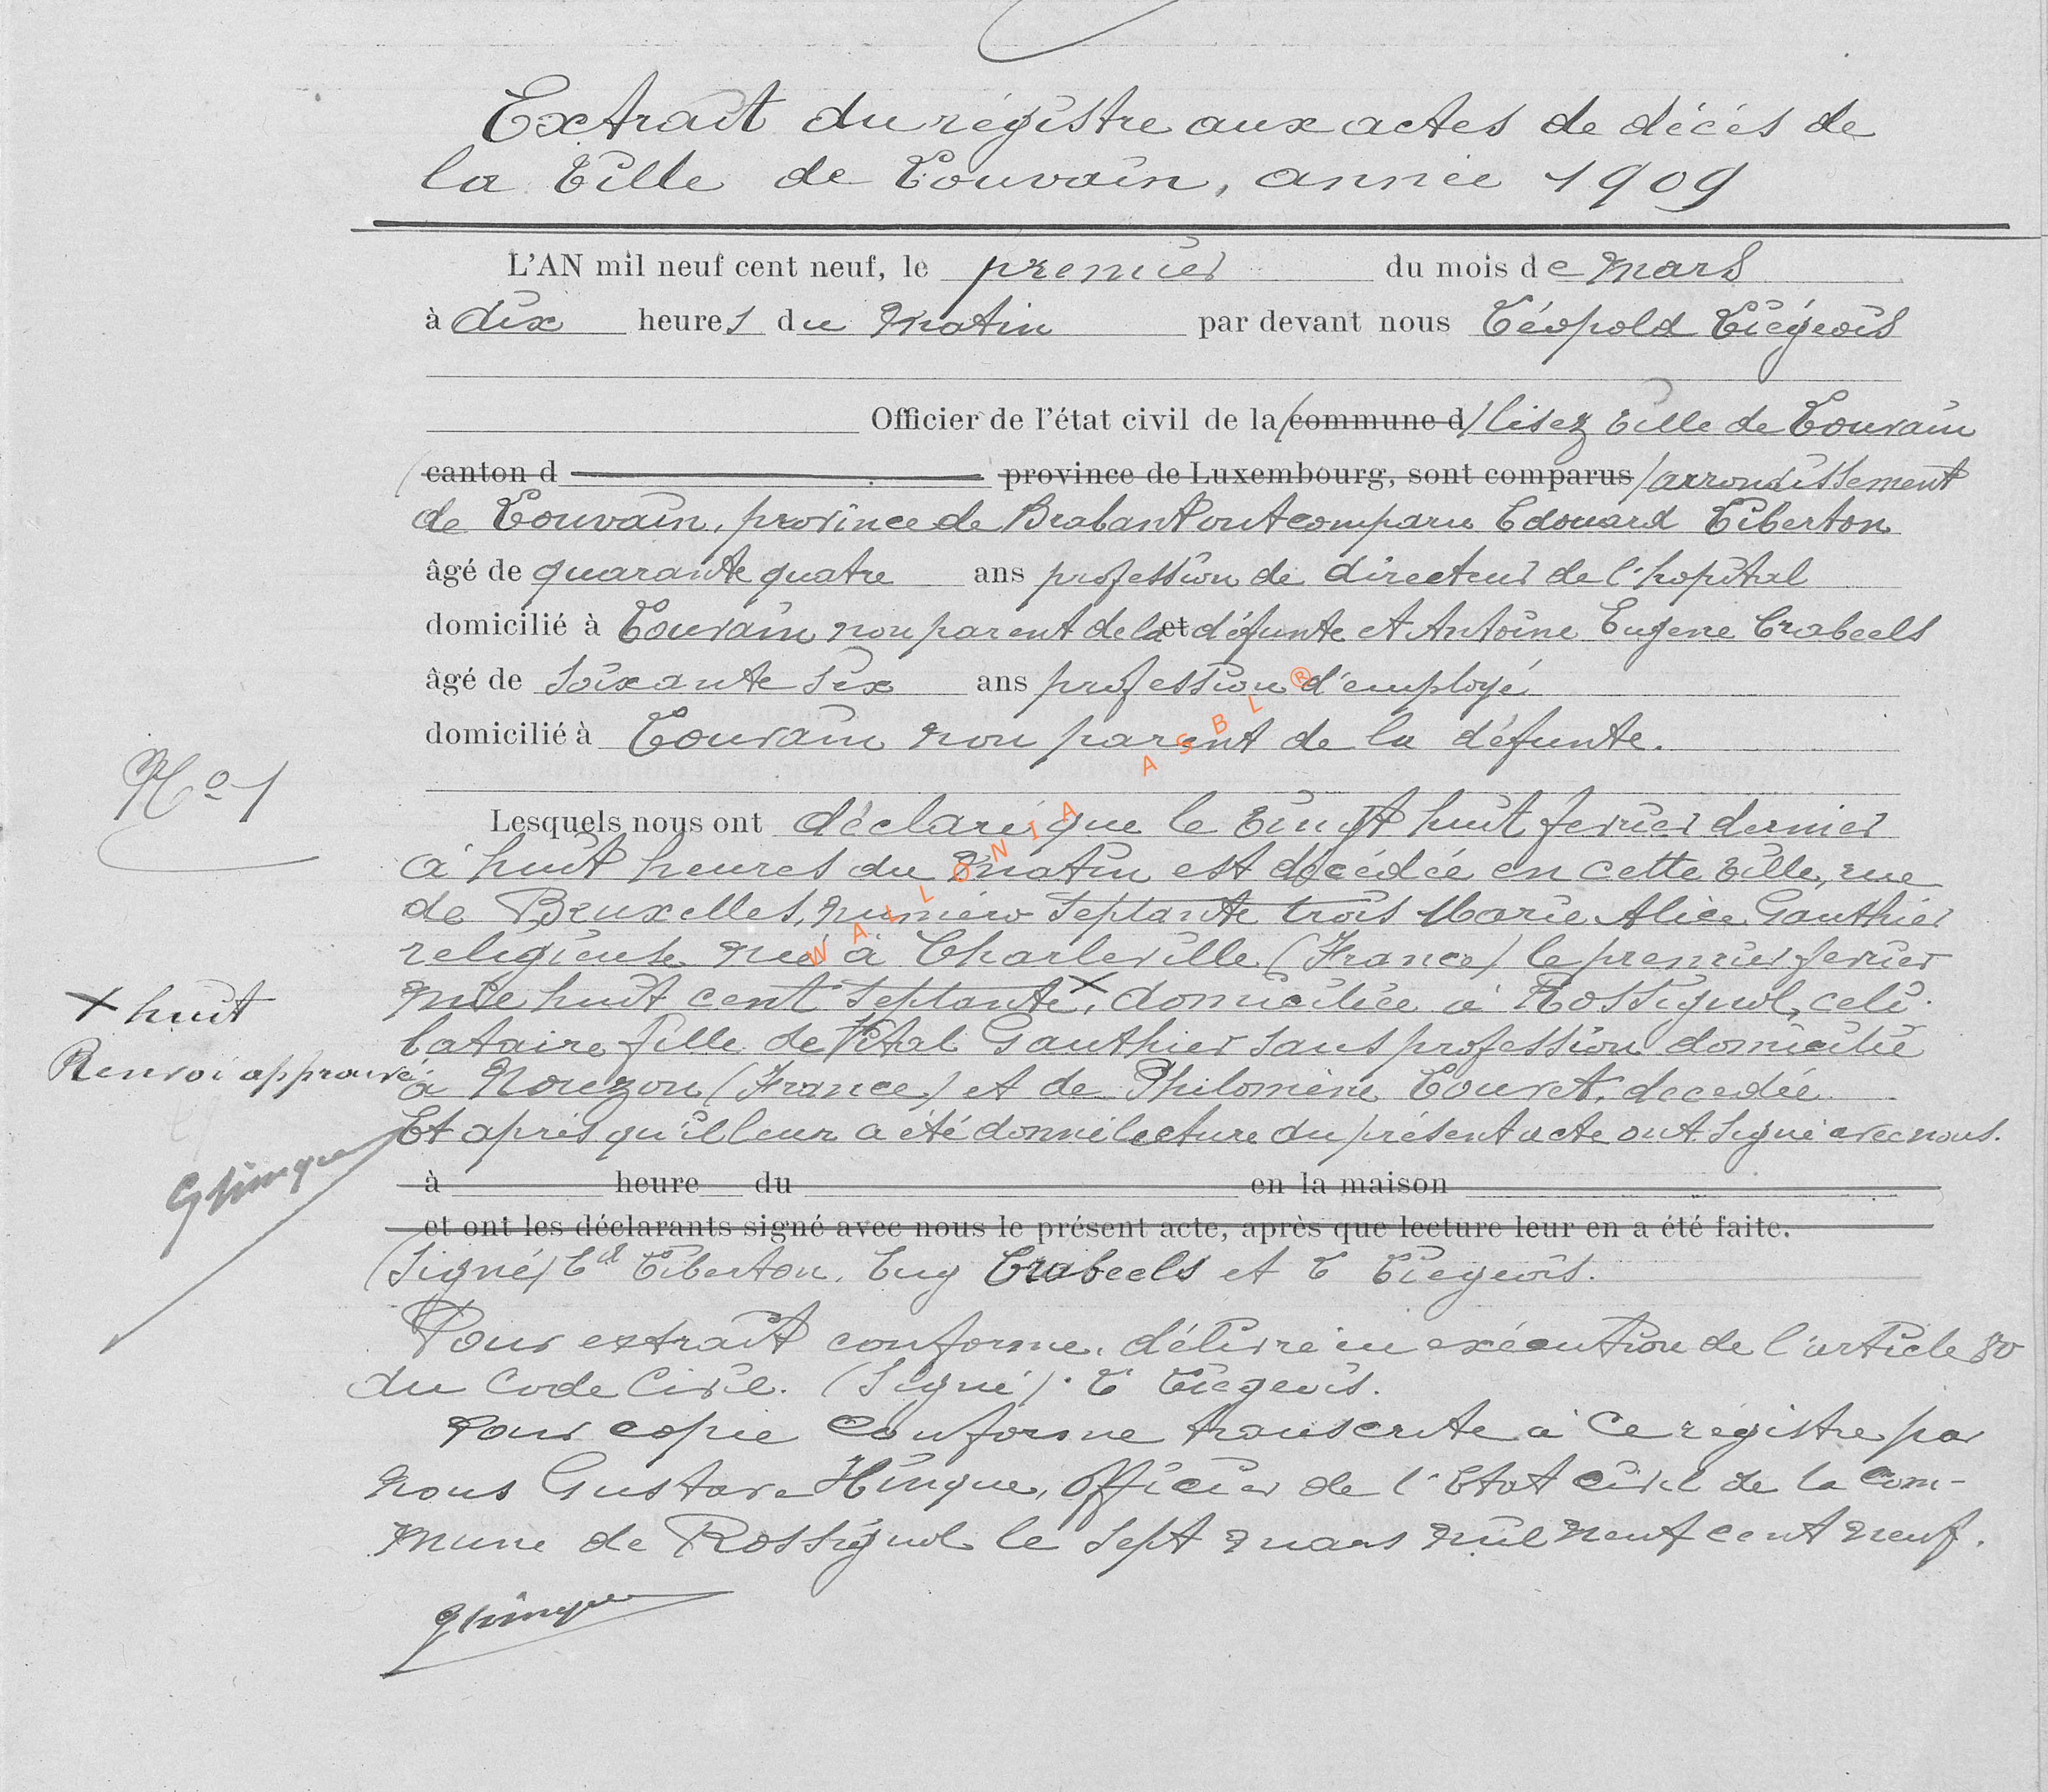 Extrait du régistre aux actes de décés de
la Ville de Louvain, année 1909
L'AN mil neuf cent neuf, le premier du mois de Mars
à dix heures du Matin par devant nous Léopold Liégeois
Officier de l'état civil de la /commune d/ lisez Ville de Louvain
(canton d province de Luxembourg, sont comparus / arrondissement
de Louvain, province de Brabant ont comparu Edouard Liberton
âgé de quarante quatre ans profession de directeur de l'hopital
domicilié à Louvain non parent de la et défunte et Antoine Eugene Crabeels
âgé de soixante six ans profession d'employé
domicilié à Louvain non parent de la défunte.
No 1
Lesquels nous ont déclaré que le vingt huit fevrier dernier
à huit heures du Matin est décédée en cette ville, rue
de Bruxelles, numéro septante trois Marie Alice Gauthier
religieuse née à Charleville (France) le premier fevrier
mil huit cent septante x, domiciliée à Rossignol, céli-
x huit
bataire fille de Vital Gauthier sans profession domicilié
Renvoi approuvé
à Nouzon (France) et de Philomène Louvet, decedée
Et après qu'il leur a été donné lecture du présent acte ont signé avec nous.
GHinque
à heure du en la maison
et ont les déclarants signé avec nous le présent acte, après que lecture leur en a été faite.
(Signé) Ed Liberton, Eug Crabeels et L Liegeois.
Pour extrait conforme, délivré en exécution de l'article 80
du Code Civil. (Signé). L Liegeois.
Pour copie conforme transcrite à ce régistre par
nous Gustave Hinque, officier de l'Etat civil de la com-
mune de Rossignol le sept mars mil neuf cent neuf.
GHinque
WALLONIA ASBL ®